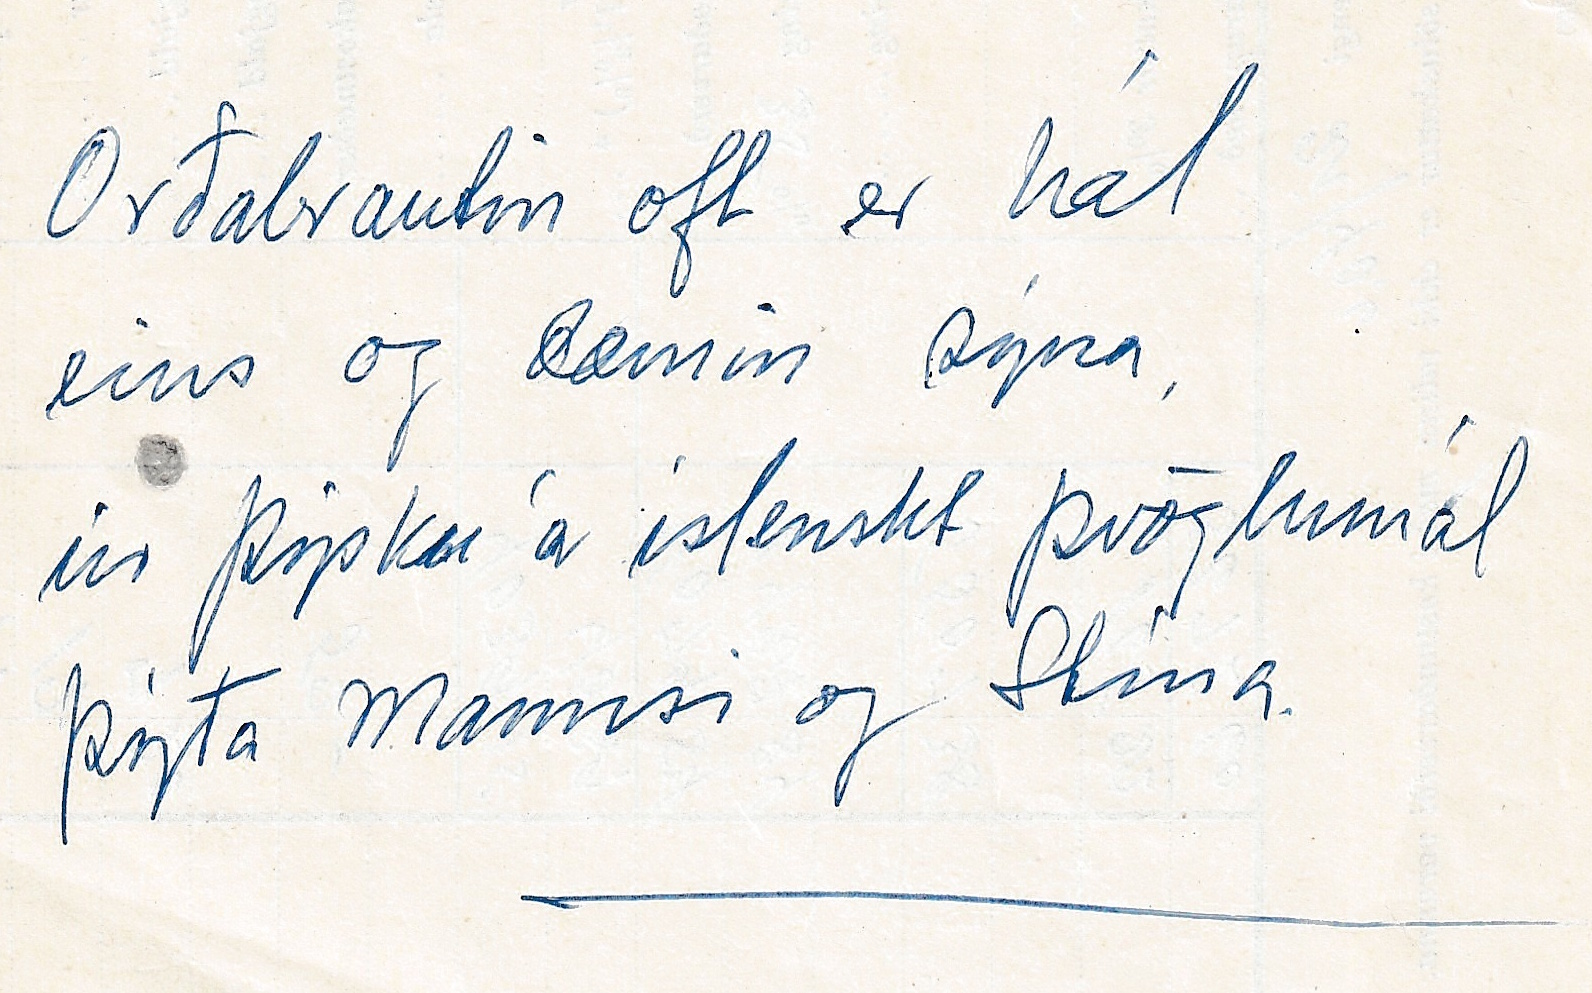 Orðabrautin oft er hál
eins og dæmin sýna,
úr þýsku á íslenskt þvöglumál
þýða Mannsi og Stína.